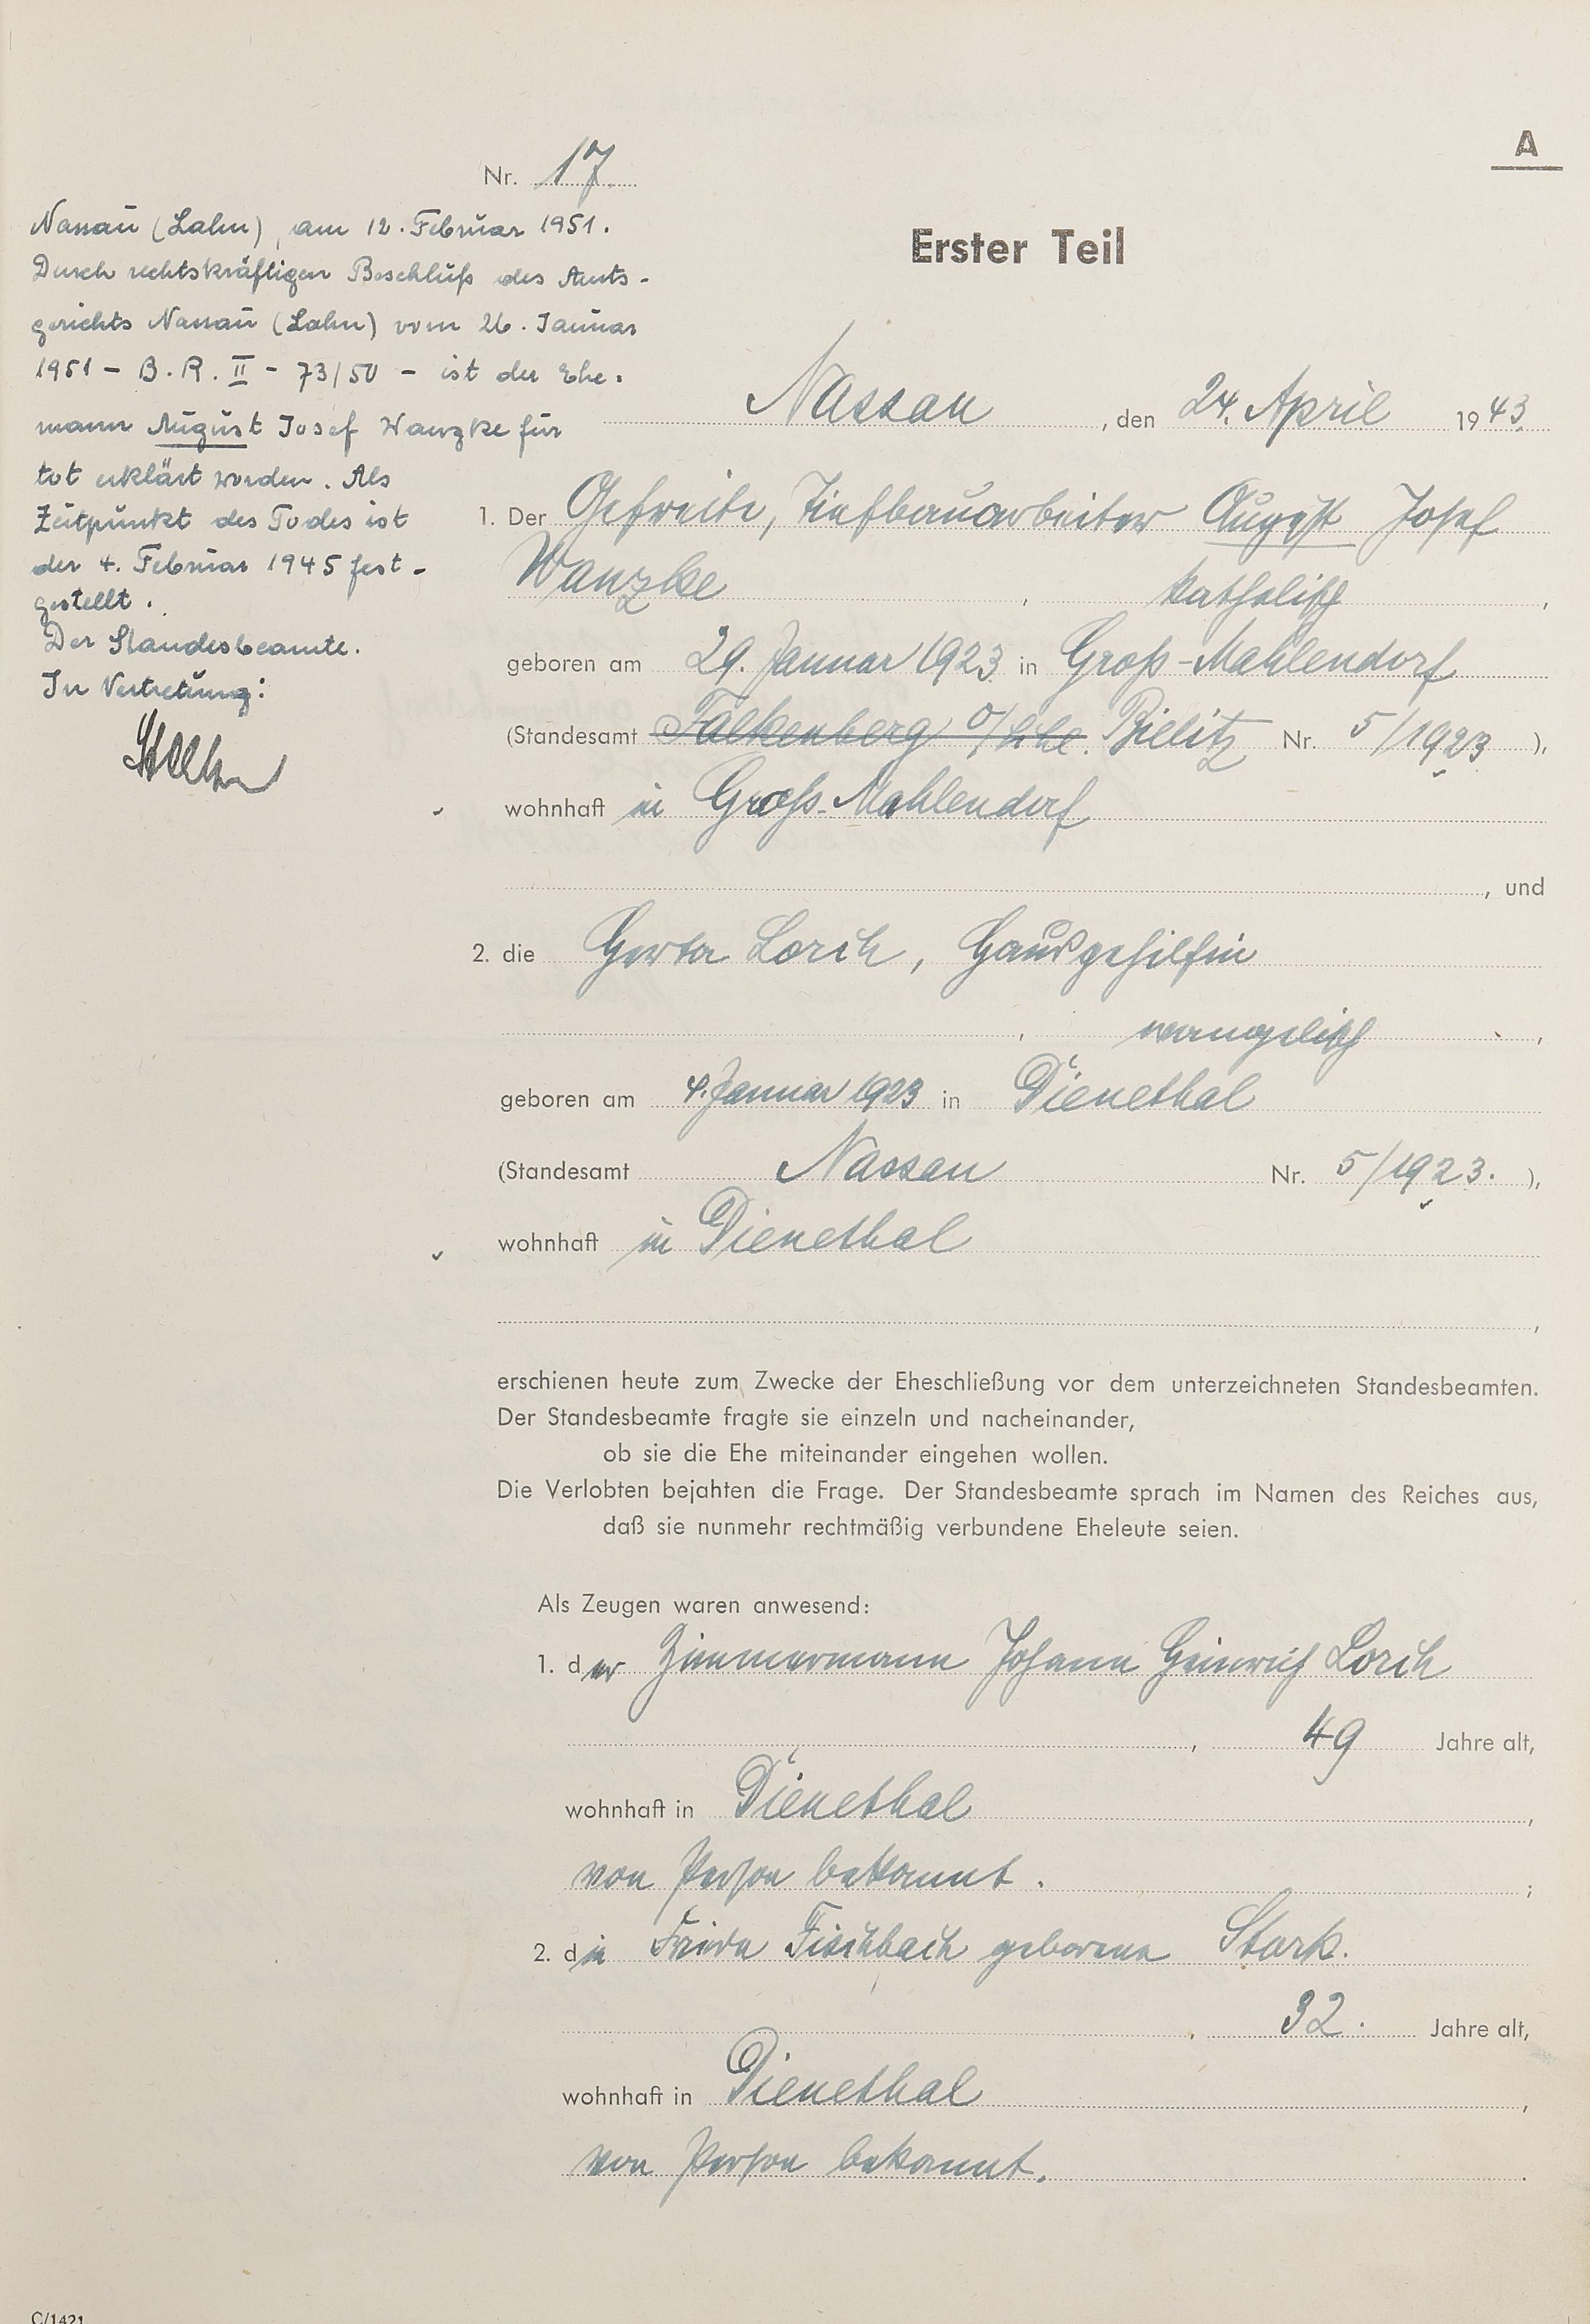 A
Nr. 17
Nassau (Lahn), am 12. Februar 1951.
Durch rechtskräftigen Beschluß des Amts-
gerichts Nassau (Lahn) vom 26. Januar
1951 - B. R. II - 73/50 - ist der Ehe-
mann August Josef Wanzke für
tot erklärt worden. Als
Zeitpunkt des Todes ist
der 4. Februar 1945 fest-
gestellt.
Der Standesbeamte.
In Vertretung:
Erster Teil
Nassau, den 24. April 1943.
1. Der Gefreite, Tiefbauarbeiter August Josef
Wanzke, katholisch,
geboren am 29. Januar 1923 in Groß-Mahlendorf
(Standesamt Falkenberg O/Schl. Bielitz Nr. 5/1923),
wohnhaft in Groß-Mahlendorf
, und
2. die Gerta Lorch, Hausgehilfin
, evangelisch,
geboren am 4. Januar 1923 in Dienethal
(Standesamt Nassau Nr. 5/1923.),
wohnhaft in Dienethal
,
erschienen heute zum Zwecke der Eheschließung vor dem unterzeichneten Standesbeamten.
Der Standesbeamte fragte sie einzeln und nacheinander,
ob sie die Ehe miteinander eingehen wollen.
Die Verlobten bejahten die Frage. Der Standesbeamte sprach im Namen des Reiches aus,
daß sie nunmehr rechtmäßig verbundene Eheleute seien.
Als Zeugen waren anwesend:
1. der Zimmermann Johann Heinrich Lorch
, 49 Jahre alt,
wohnhaft in Dienethal,
von Person bekannt. ;
2. die Frieda Fischbach geborene Stark.
, 32. Jahre alt,
wohnhaft in Dienethal,
von Person bekannt. .
C/1421